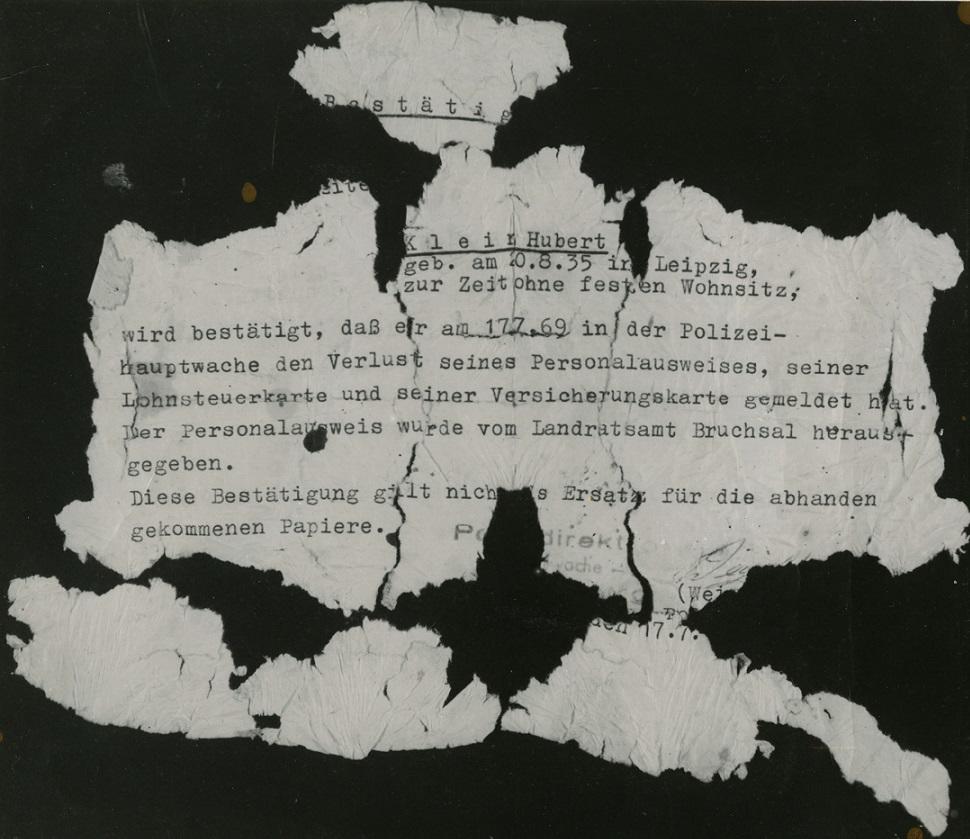 B e s t ä t i g
eite
K l e i n Hubert
geb. am 20.8.35 in Leipzig,
zur Zeit ohne festen Wohnsitz,
wird bestätigt, daß er am 17.7.69 in der Polizei-
hauptwache den Verlust seines Personalausweises, seiner
Lohnsteuerkarte und seiner Versicherungskarte gemeldet hat.
Der Personalausweis wurde vom Landratsamt Bruchsal heraus-
gegeben.
Diese Bestätigung gilt nich s Ersatz für die abhanden
gekommenen Papiere.
Po direkt
wache -
(Wei
17.7.